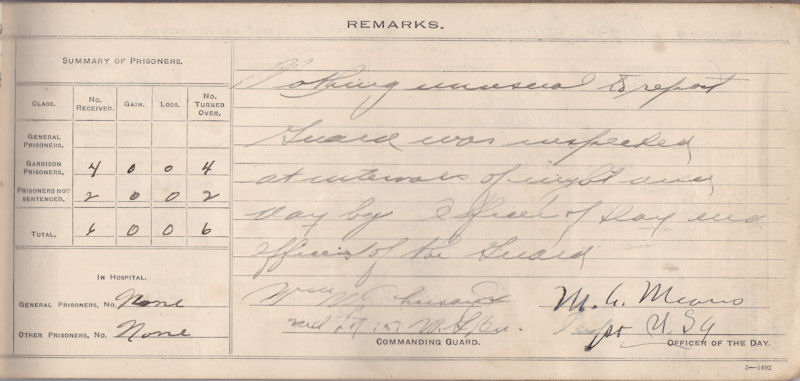 REMARKS.
SUMMARY OF PRISONERS.
CLASS. NO. RECEIVED. GAIN. LOSS. NO. TURNED OVER.
GENERAL PRISONERS.
GARRISON PRISONERS, 4 0 0 4
PRISONERS NOT SENTENCED, 2 0 0 2
TOTAL, 6 0 0 6
IN HOSPITAL.
GENERAL PRISONERS, NO. None
OTHER PRISONERS, NO. None
Nothing unusual to report
Guard was inspected
at intervals of night and
day by Officer of Day and
officer of the Guard
Wm
COMMANDING GUARD.
M. A. Means
OFFICER OF THE DAY.
3—1492